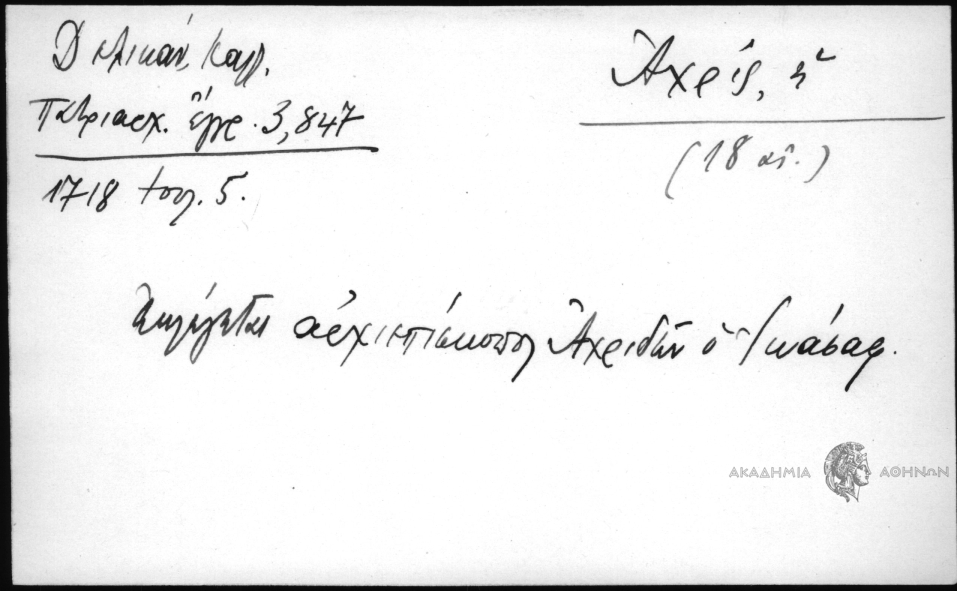 Δελικάν, Καλλ.
Πατριαρχ. Ἔγγρ. 3,847
1718 Ἰουλ. 5.
Ἀχρίς, ἡ
(18 αἰ.)
Ἐκλέγεται ἀρχιεπίσκοπος Ἀχριδῶν ὁ Ἰωάσαφ.
ΑΚΑΔΗΜΙΑ ΑΘΗΝΩΝ